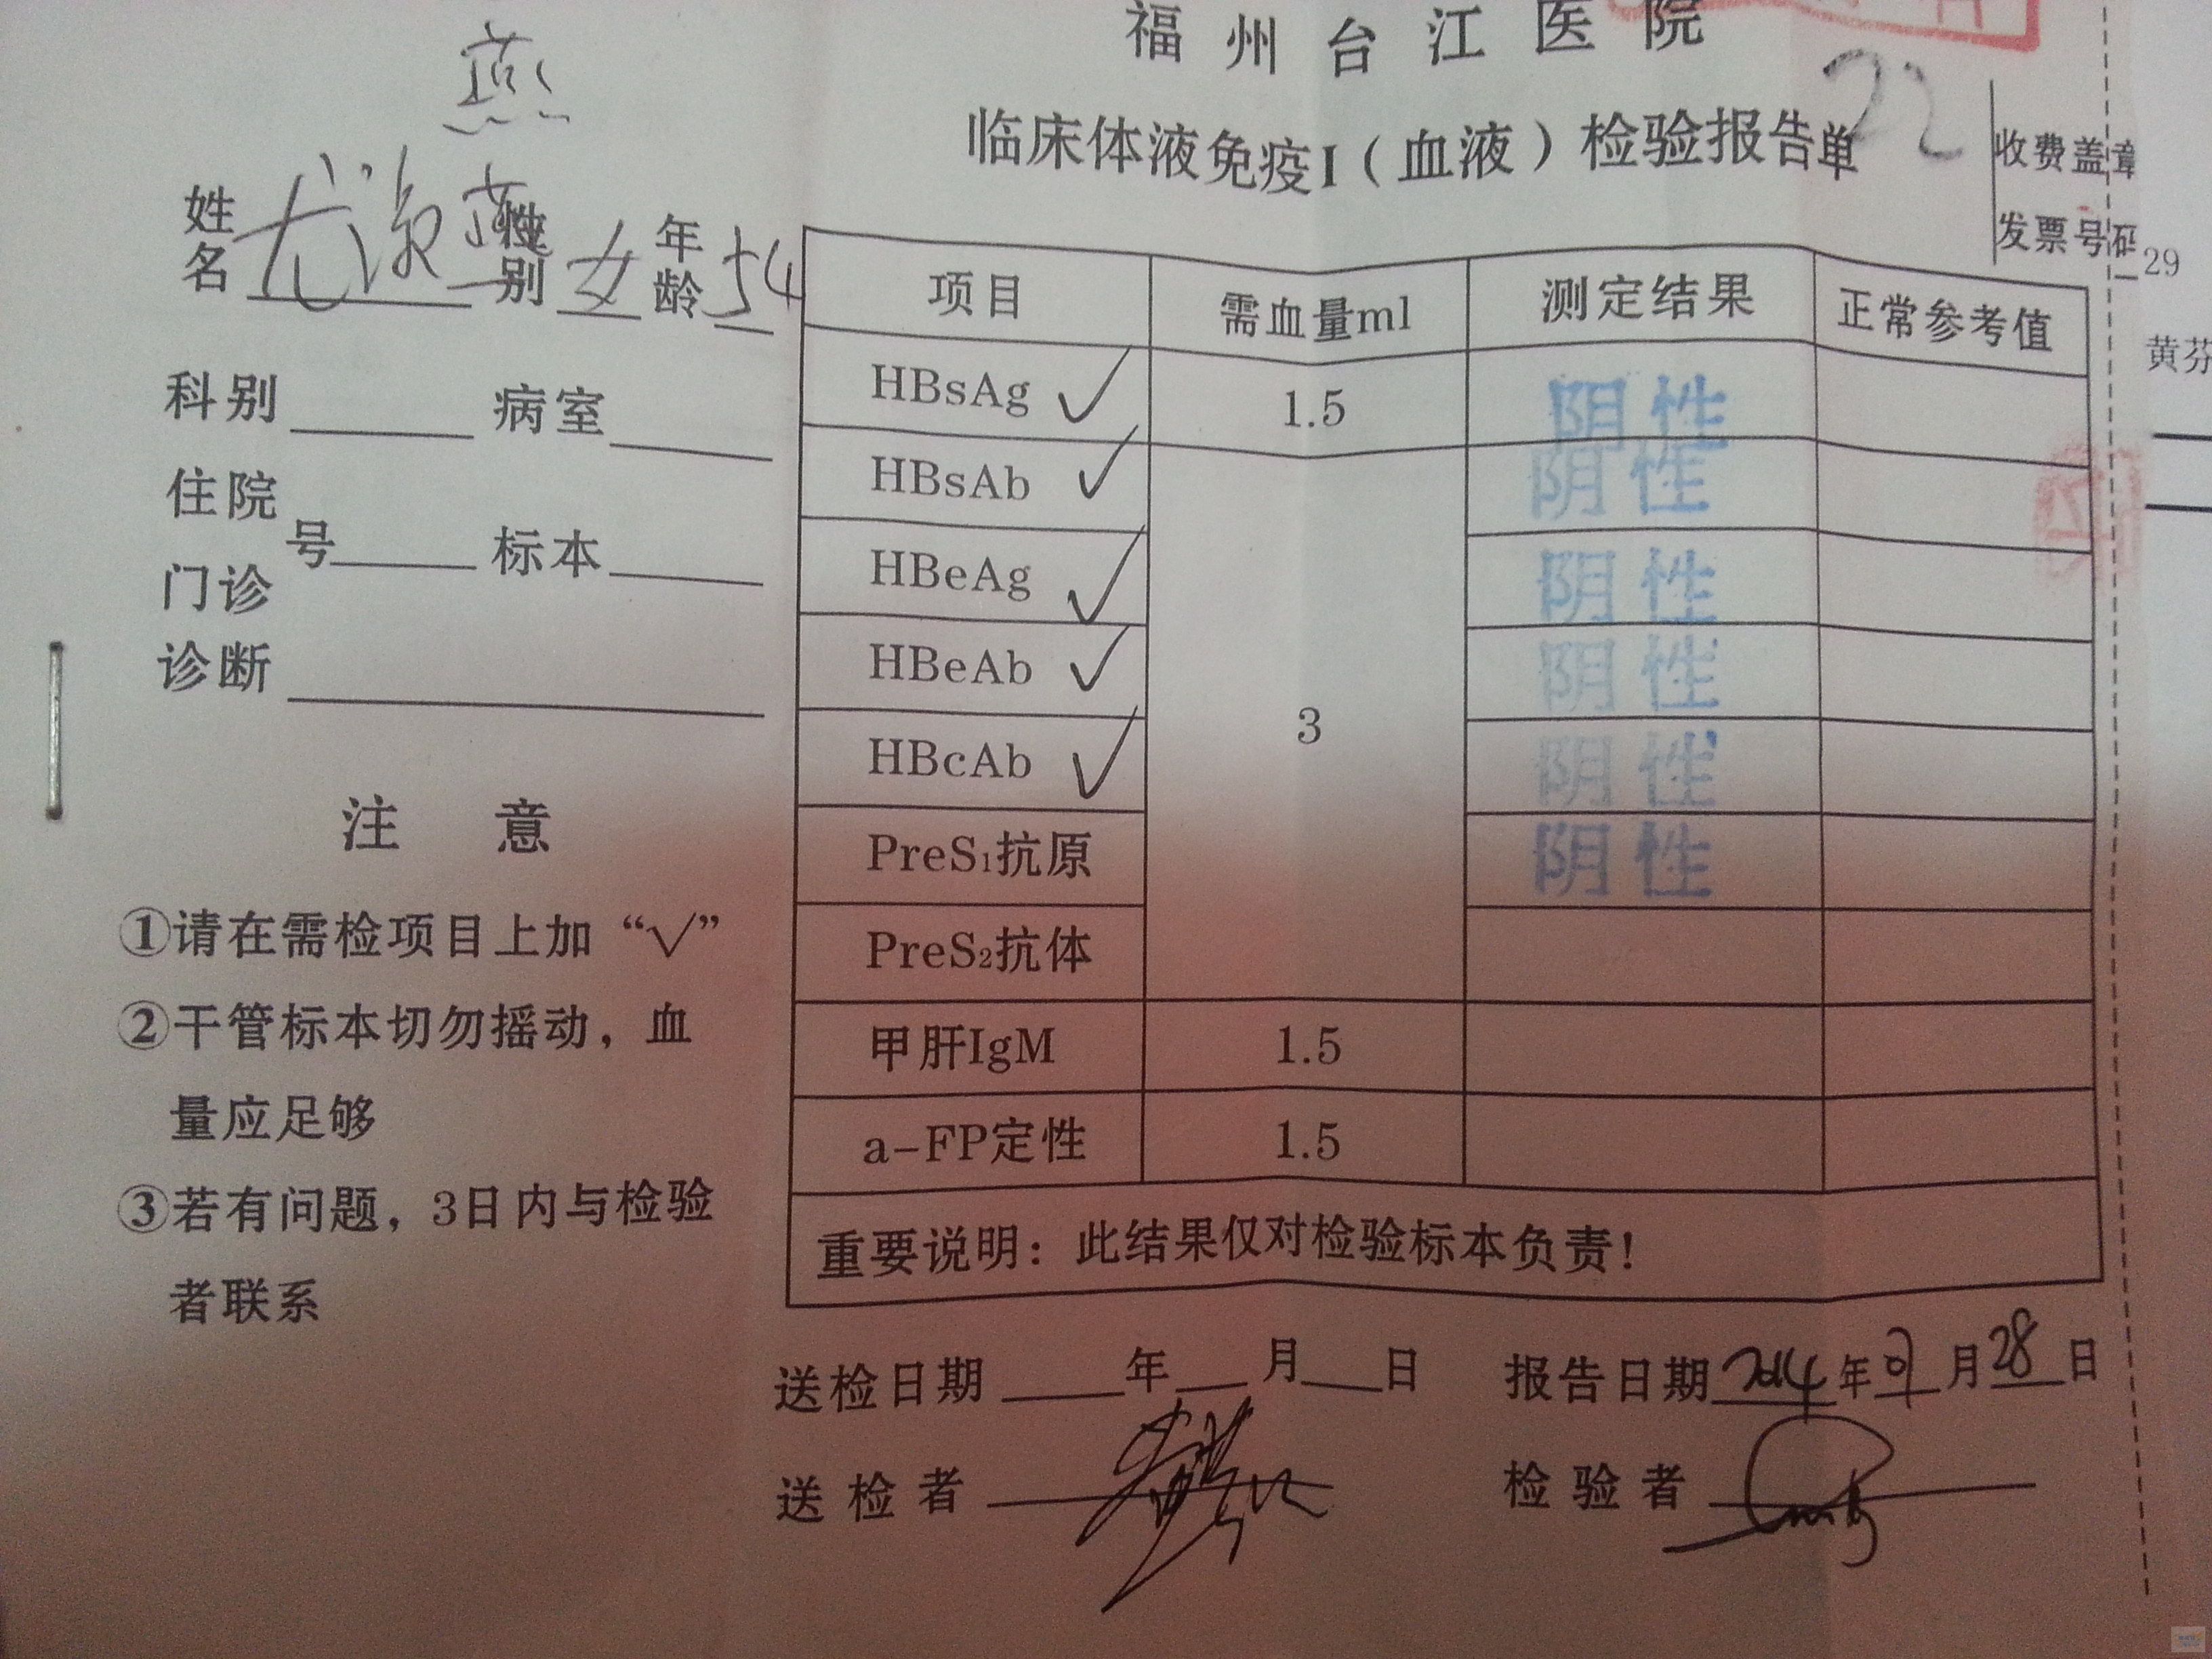 福州台江医院
临床体液免疫I（血液）检验报告单
22
收费盖章
发票号码
29
黄芬
燕
姓名 尤 燕 性别 女 年龄 54
科别 病室
住院
号 标本
门诊
诊断
注 意
①请在需检项目上加“√”
②干管标本切勿摇动，血
量应足够
③若有问题，3日内与检验
者联系
项目 需血量ml 测定结果 正常参考值
HBsAg √ 1.5 阴性
HBsAb √ 阴性
HBeAg √ 阴性
HBeAb √ 阴性
HBcAb √ 3 阴性
PreS₁抗原 阴性
PreS₂抗体
甲肝IgM 1.5
a-FP定性 1.5
重要说明：此结果仅对检验标本负责！
送检日期 年 月 日 报告日期 2014 年 月 28 日
送检者 检验者